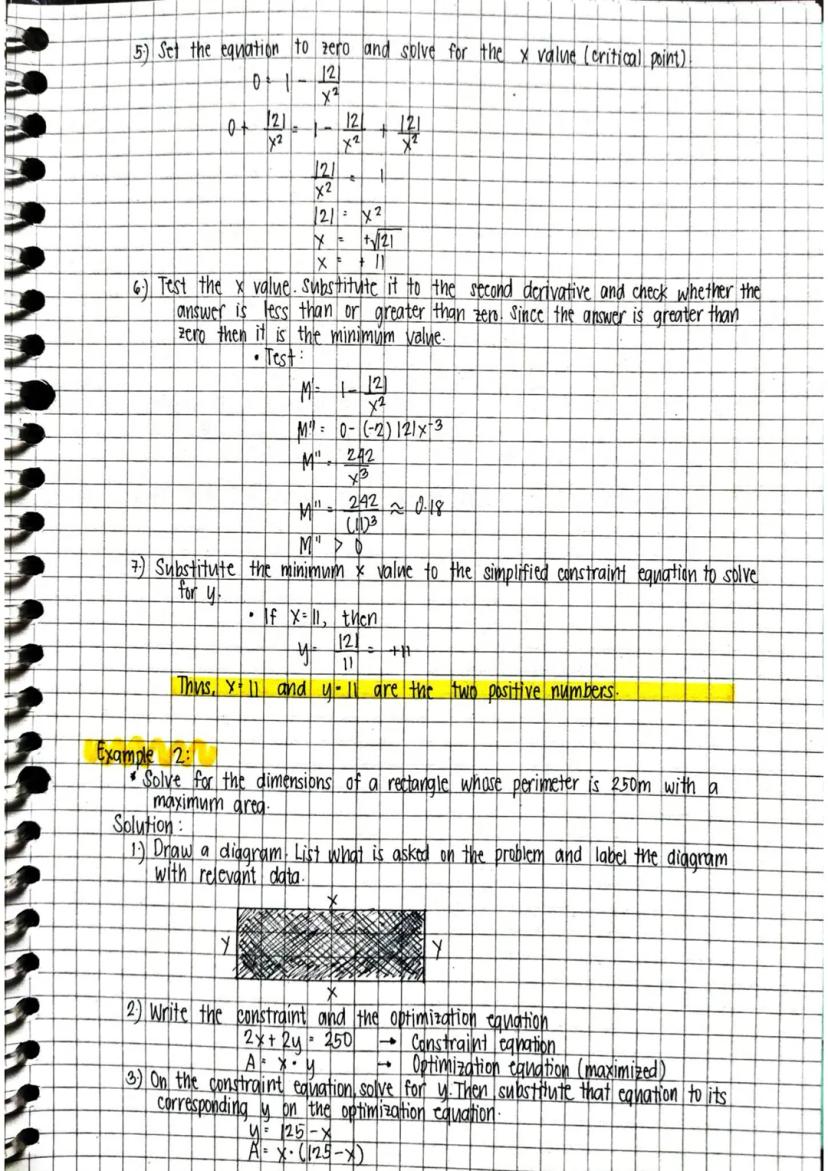 5.) Set the equation to zero and solve for the x value (critical point).
0 = 1 - 121/x²
0 + 121/x² = 1 - 121/x² + 121/x²
121/x² = 1
121 = x²
x = +√121
x = + 11
6.) Test the x value. Substitute it to the second derivative and check whether the
answer is less than or greater than zero. Since the answer is greater than
zero then it is the minimum value.
• Test:
M' = 1 - 121/x²
M" = 0 - (-2) 121x⁻³
M" = 242/x³
M" = 242/(11)³ ≈ 0.18
M" > 0
7.) Substitute the minimum x value to the simplified constraint equation to solve
for y.
• If x = 11, then
y = 121/11 = +11
Thus, x = 11 and y = 11 are the two positive numbers.
Example 2:
* Solve for the dimensions of a rectangle whose perimeter is 250m with a
maximum area.
Solution:
1.) Draw a diagram. List what is asked on the problem and label the diagram
with relevant data.
x
y y
x
2.) Write the constraint and the optimization equation
2x + 2y = 250 → Constraint equation
A = x • y → Optimization equation (maximized)
3.) On the constraint equation, solve for y. Then substitute that equation to its
corresponding y on the optimization equation.
y = 125 - x
A = x • (125 - x)